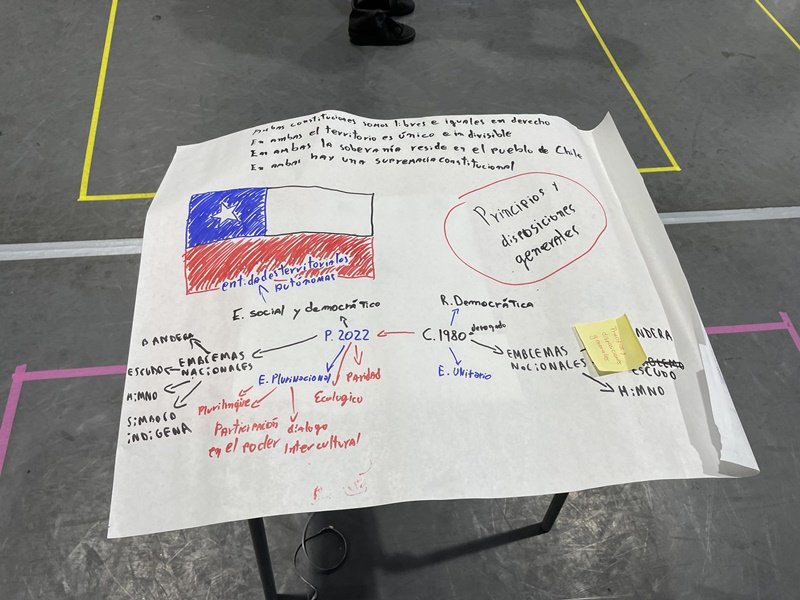 Ambas constituciones somos libres e iguales en derecho
En ambas el territorio es único e indivisible
En ambas la soberanía reside en el pueblo de Chile
En ambas hay una supremacía constitucional
Principios y
disposiciones
generales
entidades territoriales
autónomas
E. social y democrático
R. Democrática
P. 2022
C. 1980
derogado
BANDERA
ESCUDO
HiMNO
SiMBOLO
iNDÍGENA
EMBLEMAS
NACIONALES
E. Plurinacional
Paridad
Ecologico
Plurilingüe
Participación
en el poder
dialogo
Intercultural
E. Unitario
EMBLEMAS
NACIONALES
NDERA
ESCUDO
HiMNO
disposiciones
generales